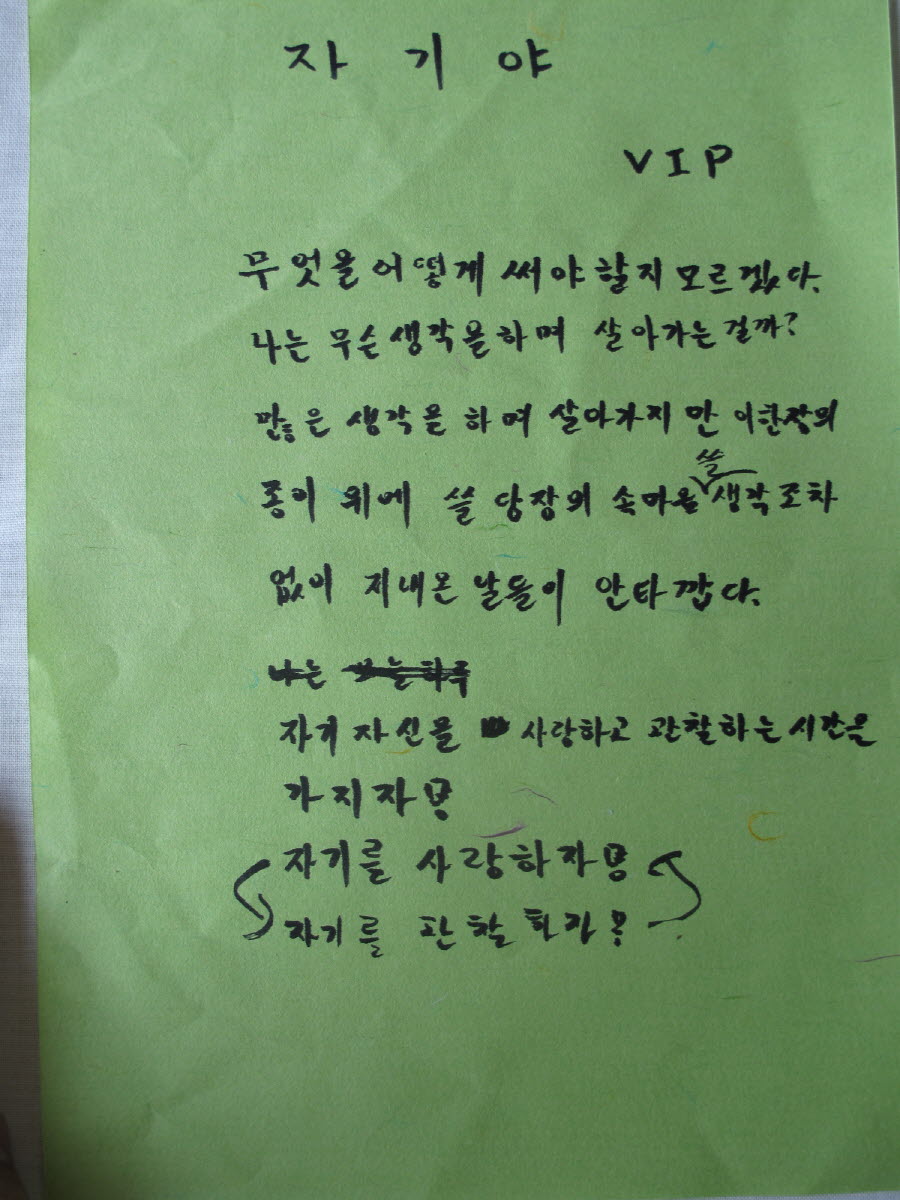 자기야
VIP
무엇을 어떻게 써야 할지 모르겠다.
나는 무슨 생각을 하며 살아가는 걸까?
많은 생각을 하며 살아가지만 이 한장의
종이 위에 쓸 당장의 속마음 쓸 생각조차
없이 지내온 날들이 안타깝다.
나는
자기 자신을 사랑하고 관찰하는 시간을
가지자!
자기를 사랑하자!
자기를 관찰하자!